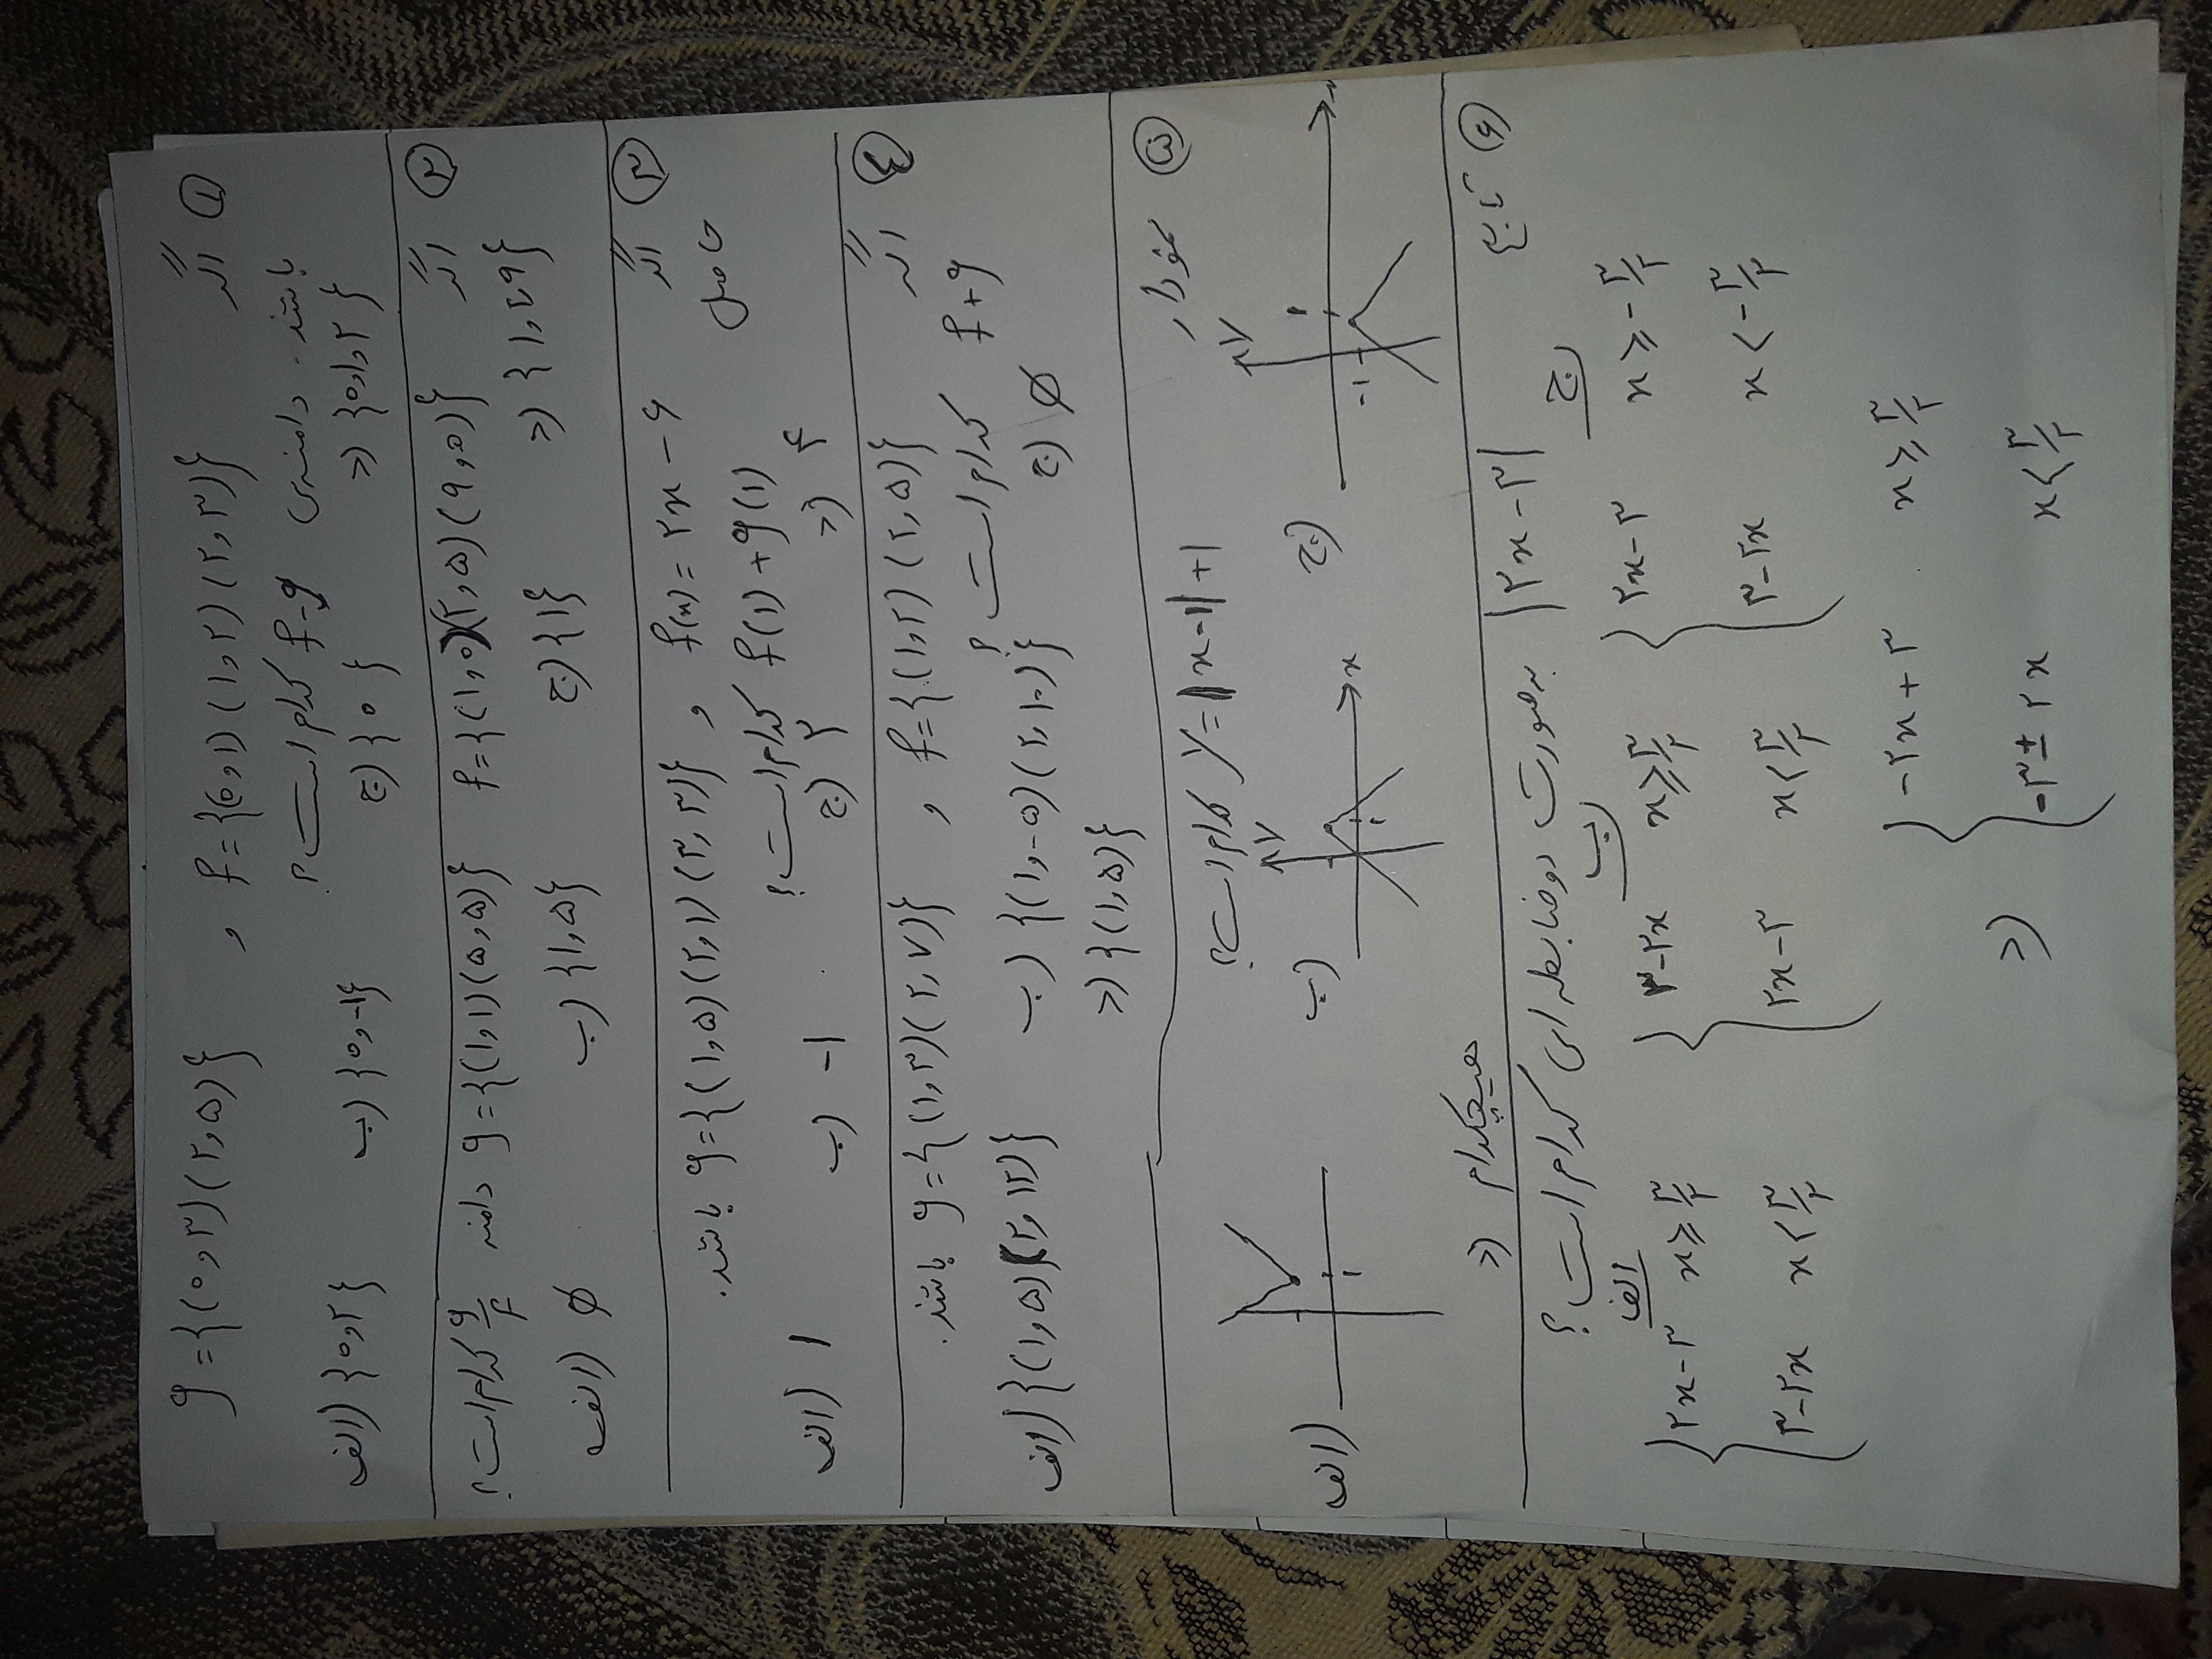 ① اگر f={(۰,۱)(۱,۲)(۲,۳)} , g={(۰,۳)(۲,۵)}
باشند. دامنه‌ی f-g کدام است؟
الف) {۰,۲} ب) {۰,-۱} ج) {۰} د) {۰,۱,۲}
② اگر f={(۱,۰)(۲,۵)(۹,۰)} g={(۱,۱)(۵,۵)} دامنه g/f کدام است؟
الف) ∅ ب) {۱,۵} ج) {۱} د) {۱,۲,۹}
③ اگر f(x)=۲x-۶ , g={(۱,۵)(۲,۷)(۳,۳)} باشند.
حاصل f(۱)+g(۱) کدام است؟
الف) ۱ ب) -۱ ج) ۲ د) ۴
④ اگر f={(۱,۲)(۲,۵)} , g={(۱,۳)(۲,۷)} باشند.
f+g کدام است؟
الف) {(۱,۵)(۲,۱۲)} ب) {(۱,-۵)(۲,۱۰)} ج) ∅
د) {(۱,۵)}
⑤ نمودار y=|x-1|+1 کدام است؟
الف) ب) y x ج) y x
-1
د) هیچکدام
⑥ تابع |۲x-۳| به صورت دو ضابطه ای کدام است؟
الف ب ج
{۲x-۳ x≥۳/۲ {۳-۲x x≥۳/۲ {۲x-۳ x≥-۳/۲
۳-۲x x<۳/۲ ۲x-۳ x<۳/۲ ۳-۲x x<-۳/۲
د) {-۲x+۳ x≥۳/۲
-۳±۲x x<۳/۲